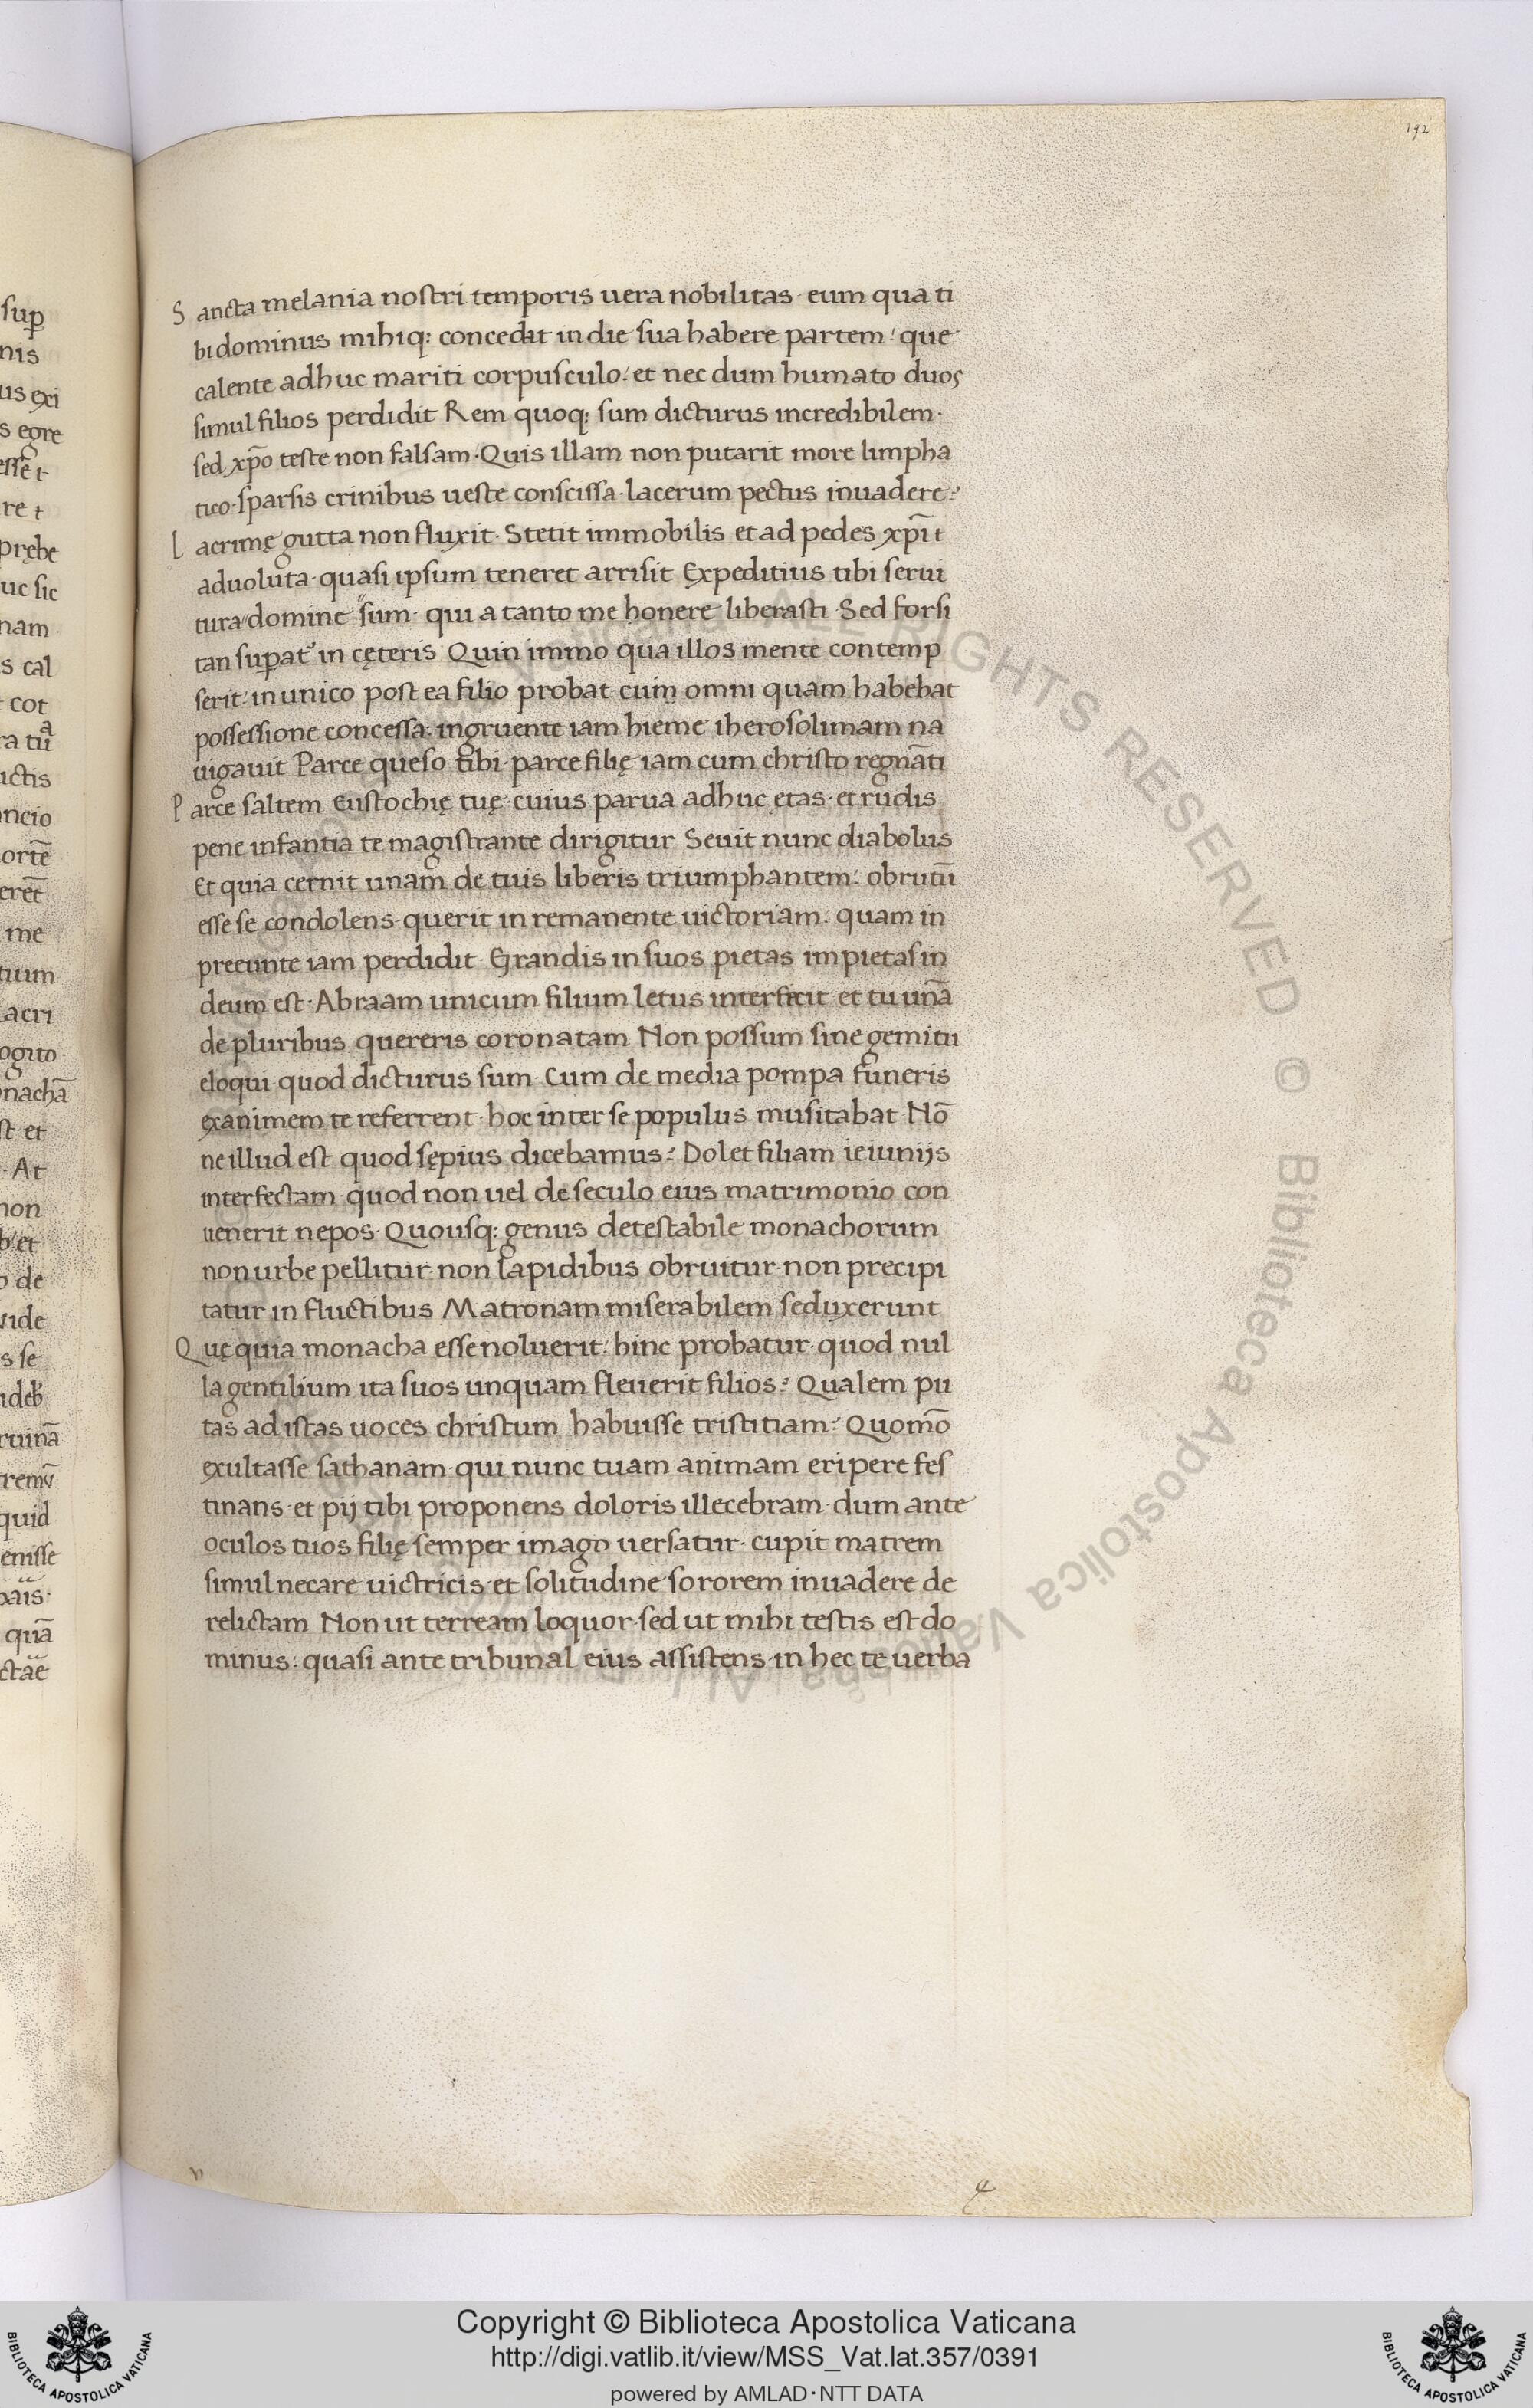 192
sup̄
nis
us exi
s egre
esse t
re t
prębe
uc sic
nam
s cal
t cot
ra tuā
uctis
ncio
ortē
eret̄
me
tuum
acri
ogito ·
nachā
st et
· At
non
b' et
o de
vide
s se
ideb'
ruinā
quid
enisse
quā
Sancta melania nostri temporis uera nobilitas · eum qua ti
bi dominus mihiq: concedat in die sua habere partem: que
calente adhuc mariti corpusculo: et nec dum humato duos
simul filios perdidit Rem quoq: sum dicturus incredibilem ·
sed xp̄o teste non falsam · Quis illam non putarit more limpha
tico · sparsis crinibus ueste conscissa · lacerum pectus inuadere?
Lacrimę gutta non fluxit · Stetit immobilis et ad pedes xp̄i t
aduoluta · quasi ipsum teneret arrisit Expeditius tibi serui
tura domine sum · qui a tanto me honere liberasti · Sed forsi
tan sup̄at' in cęteris Quin immo qua illos mente contemp
serit: in unico post ea filio probat · cum omni quam habebat
possessione concessa: ingruente iam hieme iherosolimam na
uigauit Parce queso tibi · parce filię iam cum christo regnāti
Parce saltem Eustochię tuę · cuius parua adhuc ętas · et rudis
pene infantia te magistrante dirigitur Seuit nunc diabolus
Et quia cernit unam de tuis liberis triumphantem: obrutū
esse se condolens · querit in remanente uictoriam: quam in
preeunte iam perdidit · Grandis in suos pietas impietas in
deum est · Abraam unicum filium letus interficit et tu unā
de pluribus quereris coronatam Non possum sine gemitu
eloqui quod dicturus sum · Cum de media pompa funeris
exanimem te referrent · hoc inter se populus musitabat Nō
ne illud est quod sępius dicebamus? Dolet filiam ieiunijs
interfectam quod non uel de seculo eius matrimonio con
uenerit nepos · Quousq: genus detestabile monachorum
non urbe pellitur · non lapidibus obruitur · non precipi
tatur in fluctibus Matronam miserabilem seduxerunt
Quę quia monacha esse noluerit: hinc probatur · quod nul
la gentilium ita suos unquam fleuerit filios? Qualem pu
tas ad istas uoces christum habuisse tristitiam? Quomō
exultasse sathanam · qui nunc tuam animam eripere fes
tinans · et pij tibi proponens doloris illecebram · dum ante
oculos tuos filię semper imago uersatur · cupit matrem
simul necare uictricis · et solitudine sororem inuadere de
relictam Non ut terream loquor · sed ut mihi testis est do
minus: quasi ante tribunal eius assistens · in hec te uerba
ALL RIGHTS RESERVED © Biblioteca Apostolica Vaticana
Copyright © Biblioteca Apostolica Vaticana
http://digi.vatlib.it/view/MSS_Vat.lat.357/0391
powered by AMLAD · NTT DATA
BIBLIOTECA APOSTOLICA VATICANA
BIBLIOTECA APOSTOLICA VATICANA